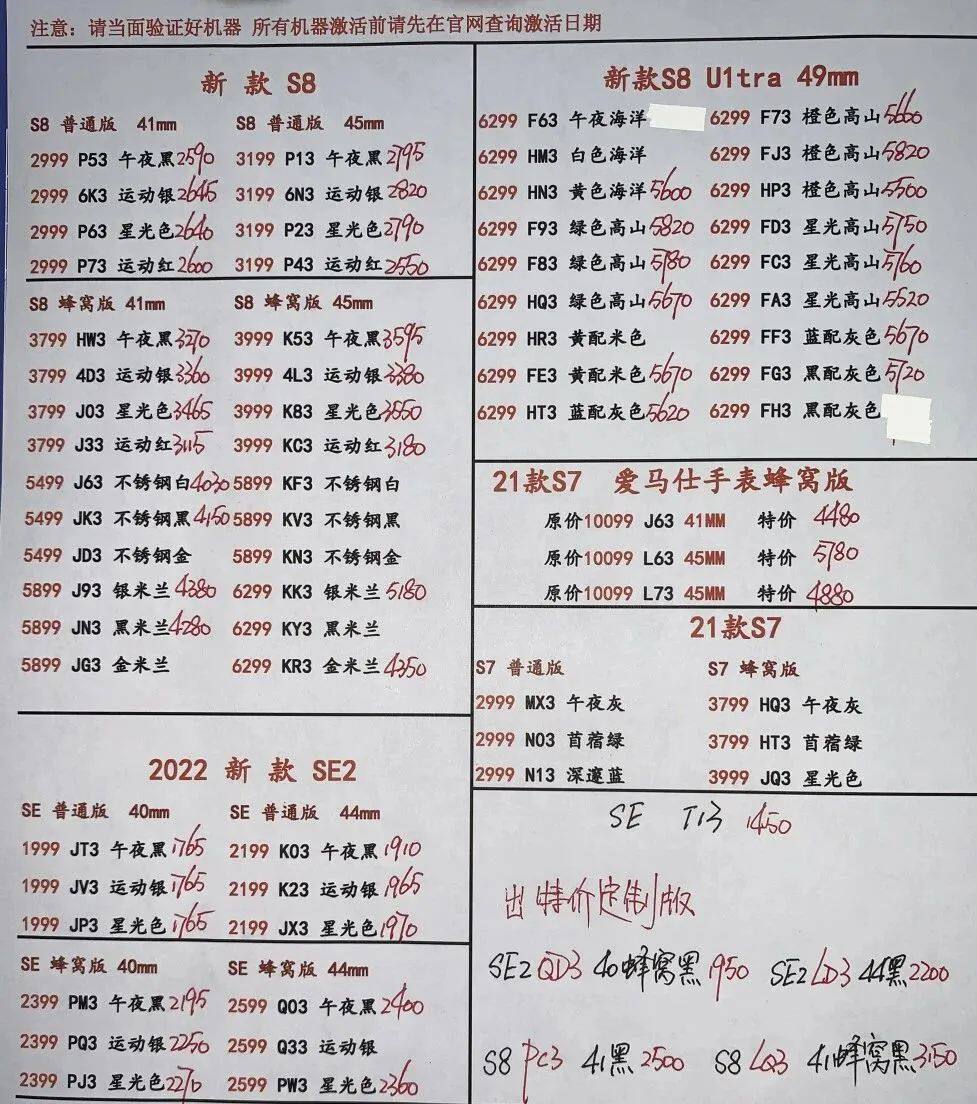 注意：请当面验证好机器 所有机器激活前请先在官网查询激活日期
新 款 S8
S8 普通版 41mm S8 普通版 45mm
2999 P53 午夜黑2590 3199 P13 午夜黑2795
2999 6K3 运动银2645 3199 6N3 运动银2820
2999 P63 星光色2640 3199 P23 星光色2790
2999 P73 运动红2600 3199 P43 运动红2550
S8 蜂窝版 41mm S8 蜂窝版 45mm
3799 HW3 午夜黑3270 3999 K53 午夜黑3595
3799 4D3 运动银3360 3999 4L3 运动银3380
3799 J03 星光色3465 3999 K83 星光色3550
3799 J33 运动红3115 3999 KC3 运动红3180
5499 J63 不锈钢白4030 5899 KF3 不锈钢白
5499 JK3 不锈钢黑4150 5899 KV3 不锈钢黑
5499 JD3 不锈钢金 5899 KN3 不锈钢金
5899 J93 银米兰4380 6299 KK3 银米兰5180
5899 JN3 黑米兰4280 6299 KY3 黑米兰
5899 JG3 金米兰 6299 KR3 金米兰4350
2022 新 款 SE2
SE 普通版 40mm SE 普通版 44mm
1999 JT3 午夜黑1765 2199 K03 午夜黑1910
1999 JV3 运动银1765 2199 K23 运动银1965
1999 JP3 星光色1765 2199 JX3 星光色1970
SE 蜂窝版 40mm SE 蜂窝版 44mm
2399 PM3 午夜黑2195 2599 Q03 午夜黑2400
2399 PQ3 运动银2250 2599 Q33 运动银
2399 PJ3 星光色2270 2599 PW3 星光色2360
新款S8 U1tra 49mm
6299 F63 午夜海洋 6299 F73 橙色高山5660
6299 HM3 白色海洋 6299 FJ3 橙色高山5820
6299 HN3 黄色海洋5600 6299 HP3 橙色高山5500
6299 F93 绿色高山5820 6299 FD3 星光高山5750
6299 F83 绿色高山5780 6299 FC3 星光高山5760
6299 HQ3 绿色高山5670 6299 FA3 星光高山5520
6299 HR3 黄配米色 6299 FF3 蓝配灰色5670
6299 FE3 黄配米色5670 6299 FG3 黑配灰色5720
6299 HT3 蓝配灰色5620 6299 FH3 黑配灰色
21款S7 爱马仕手表蜂窝版
原价10099 J63 41MM 特价 4480
原价10099 L63 45MM 特价 5780
原价10099 L73 45MM 特价 4880
21款S7
S7 普通版 S7 蜂窝版
2999 MX3 午夜灰 3799 HQ3 午夜灰
2999 N03 苜蓿绿 3799 HT3 苜蓿绿
2999 N13 深邃蓝 3999 JQ3 星光色
SE T13 1450
出特价定制版
SE2 QD3 40蜂窝黑1950 SE2 LD3 44黑2200
S8 PC3 41黑2500 S8 LQ3 41蜂窝黑3150